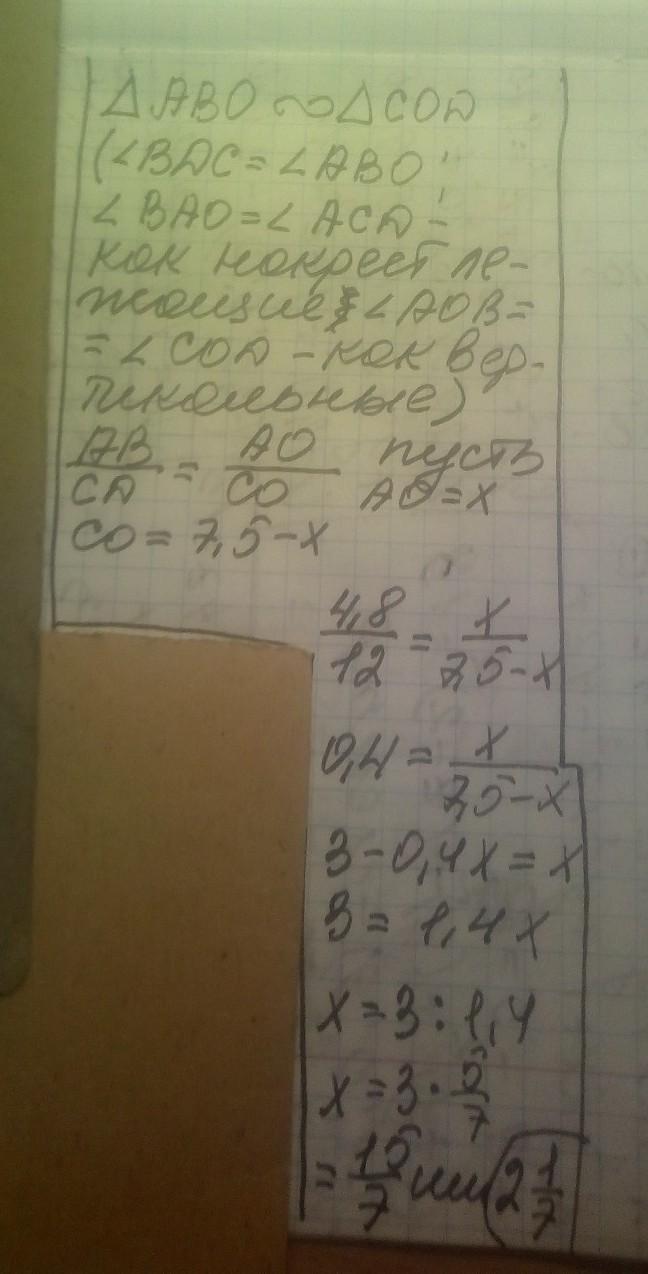 △ABO ∾ △COD
(∠BDC = ∠ABO,
∠BAO = ∠ACD -
как накрест ле-
жащие; ∠AOB =
= ∠COD - как вер-
тикальные)
AB/CD = AO/CO пусть AO = x
CO = 7,5 - x
4,8/12 = x/7,5-x
0,4 = x/7,5-x
3 - 0,4x = x
3 = 1,4x
x = 3 : 1,4
x = 3 · 5/7
= 15/7 или 2 1/7